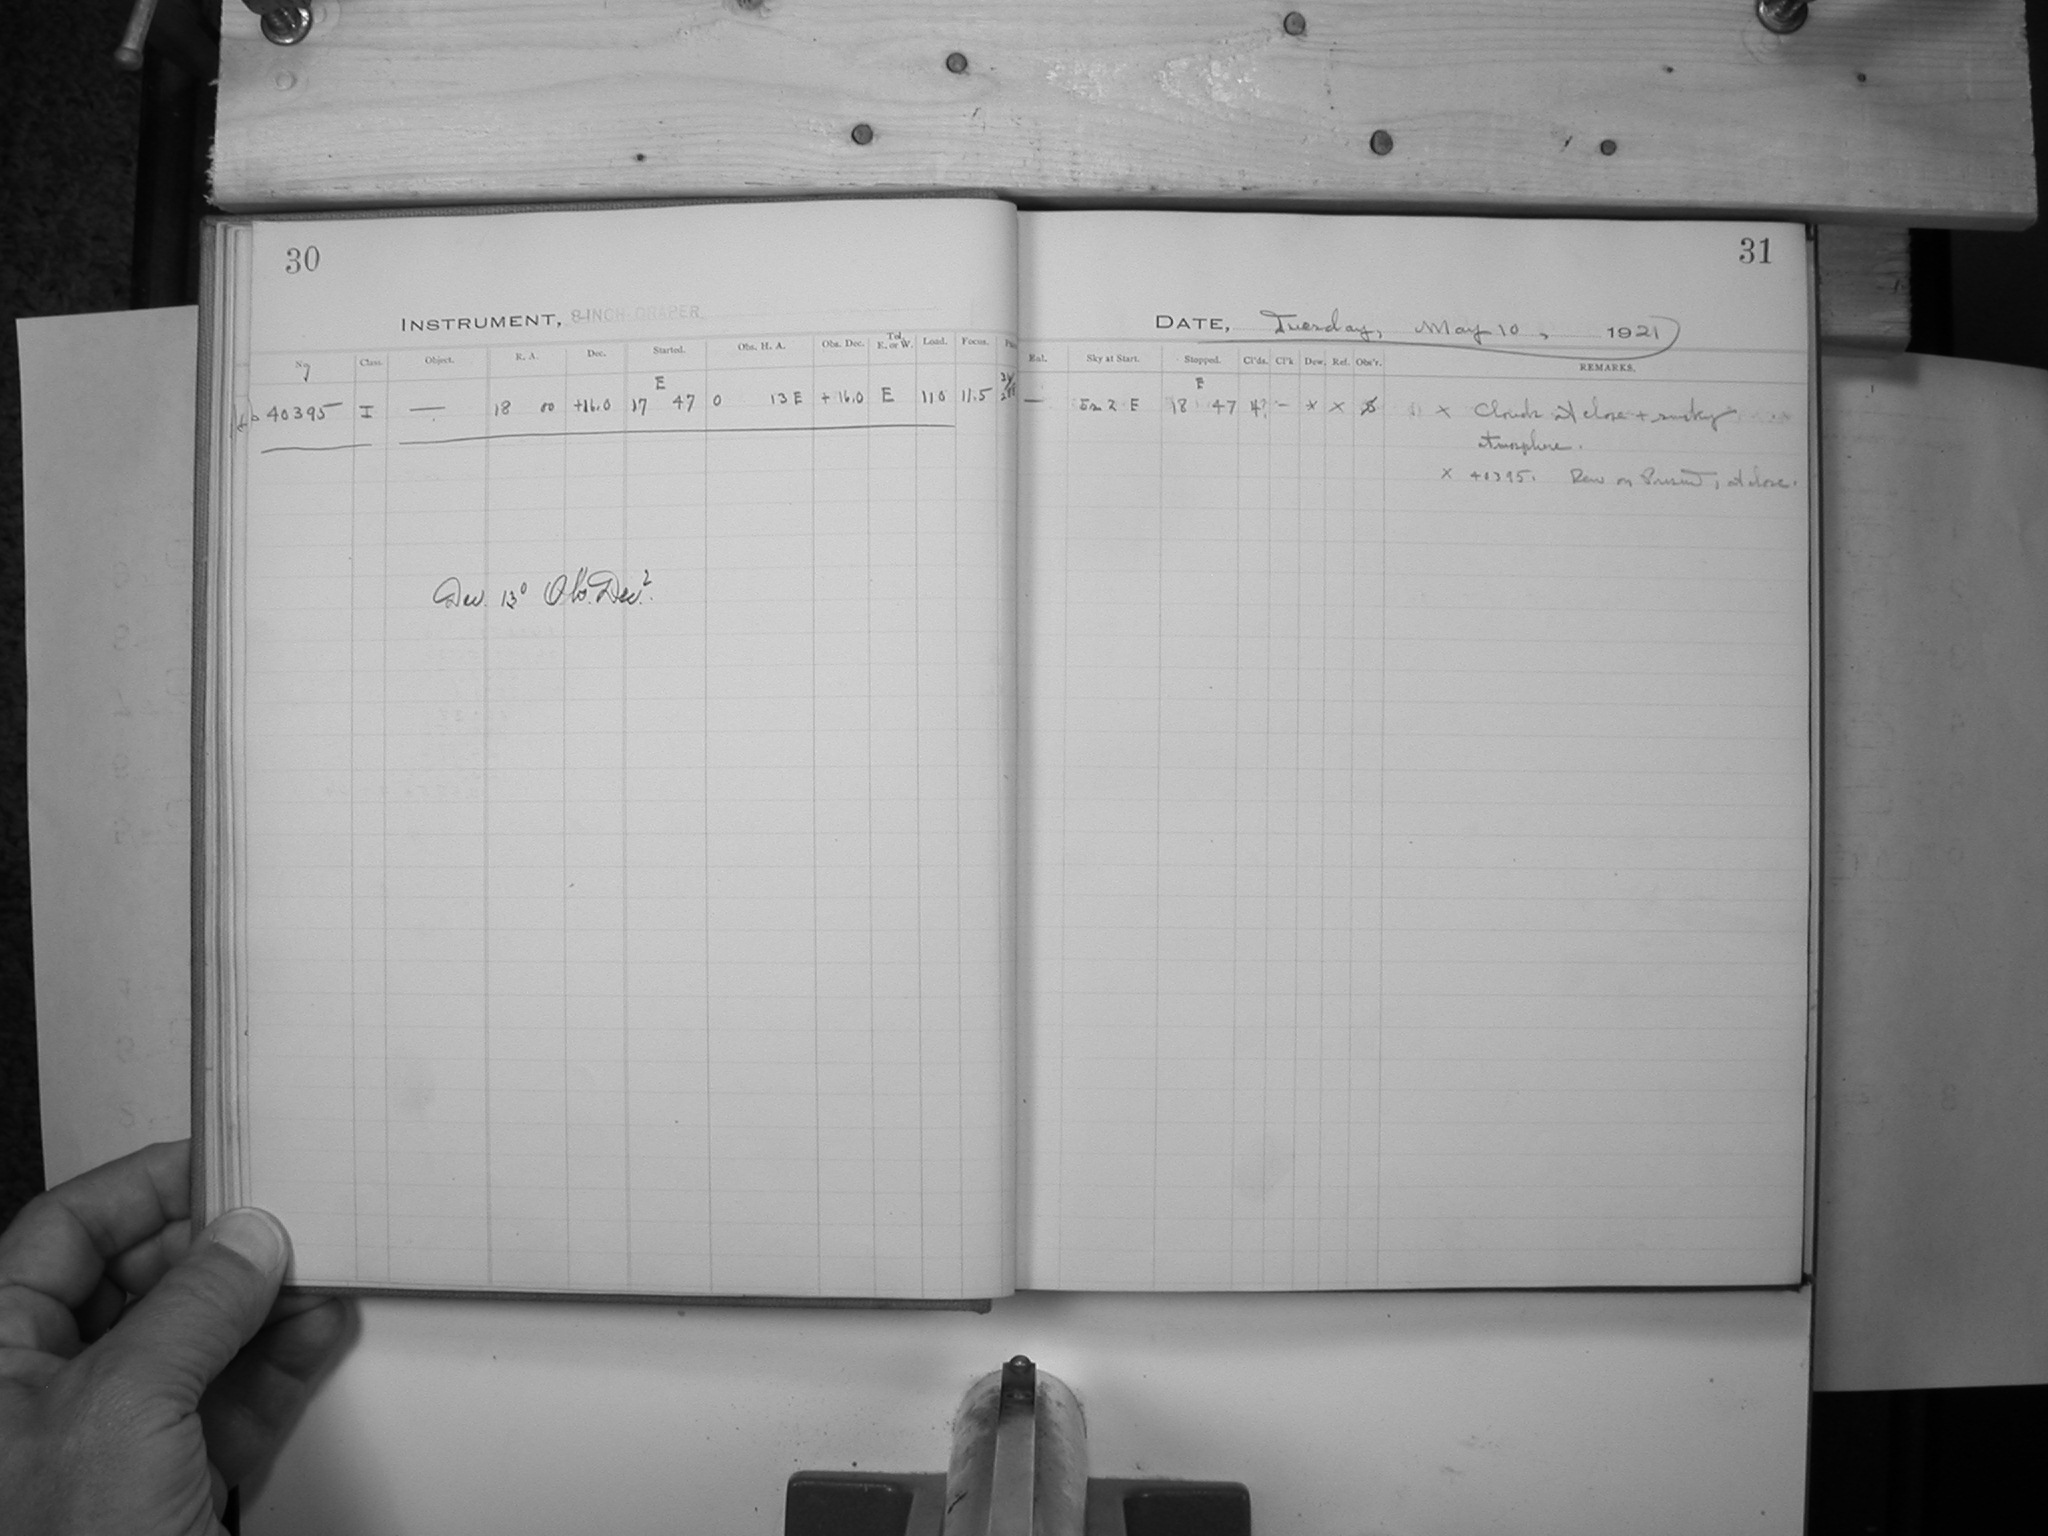 30
INSTRUMENT, 8-INCH DRAPER
No Class. Object. R. A. Dec. Started. Obs. H. A. Obs. Dec. Tel. E. or W. Load. Focus.
E
40395 I — 18 00 +16.0 17 47 0 13 E + 16.0 E 110 11.5
Dec. 13° Obs. Dec.?
31
DATE, Tuesday, May 10, 1921
Sky at Start. Stopped. Cl'ds. Cl'k Dew. Ref. Obs'r. REMARKS.
E
— E 18 47 – × × × Clouds at close + smoky
atmosphere.
× 40395. Dew on Prism, at close.